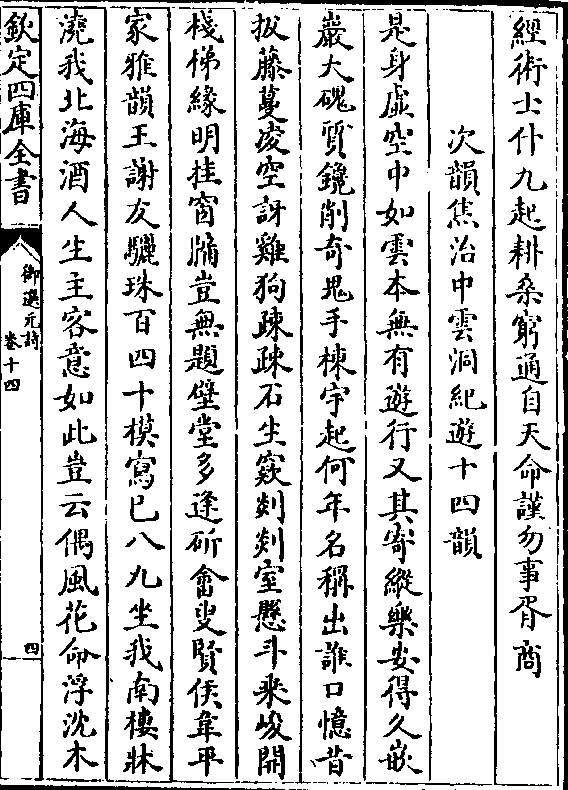 經術士什九起耕桑窮通自天命謹勿事胥商
次韻焦治中雲洞紀遊十四韻
是身虛空中如雲本無有遊行又其寄縱樂安得久嵌
巖大磈質鑱削奇鬼手棟宇起何年名稱出誰口憶昔
扳藤蔓凌空訝雞狗疎疎石生竅剡剡室懸斗來峻開
棧悌緣明挂窗牖豈無題壁堂多逢斫畬叟賢侯韋平
家雅韻王謝友驪珠百四十模寫已八九坐我南樓牀
澆我北海酒人生主客意如此豈云偶風花命浮沈木
欽定四庫全書
御選元詩
卷十四
四